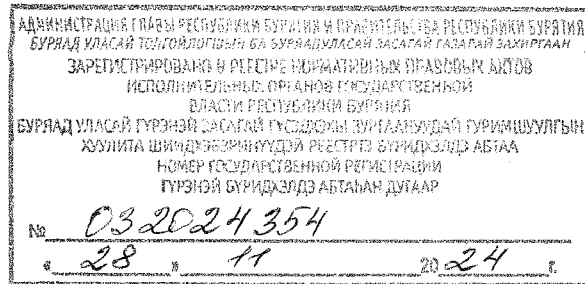 АДМИНИСТРАЦИЯ ГЛАВЫ РЕСПУБЛИКИ БУРЯТИЯ И ПРАВИТЕЛЬСТВА РЕСПУБЛИКИ БУРЯТИЯ
БУРЯАД УЛАСАЙ ТОЛГОЙЛОГШЫН БА БУРЯАД УЛАСАЙ ЗАСАГАЙ ГАЗАРАЙ ЗАХИРГААН
ЗАРЕГИСТРИРОВАНО В РЕЕСТРЕ НОРМАТИВНЫХ ПРАВОВЫХ АКТОВ
ИСПОЛНИТЕЛЬНЫХ ОРГАНОВ ГОСУДАРСТВЕННОЙ
ВЛАСТИ РЕСПУБЛИКИ БУРЯТИЯ
БУРЯАД УЛАСАЙ ГҮРЭНЭЙ ЗАСАГАЙ ГҮЙСЭДХЭХЫ ЗУРГААНУУДАЙ ГУРИМШУУЛГЫН
ХУУЛИТА ШИИДХЭБЭРИНҮҮДЭЙ РЕЕСТРТЭ БҮРИДХЭЛДЭ АБТАА
НОМЕР ГОСУДАРСТВЕННОЙ РЕГИСТРАЦИИ
ГҮРЭНЭЙ БҮРИДХЭЛДЭ АБТАҺАН ДУГААР
№ 032024354
« 28 » 11 20 24 г.